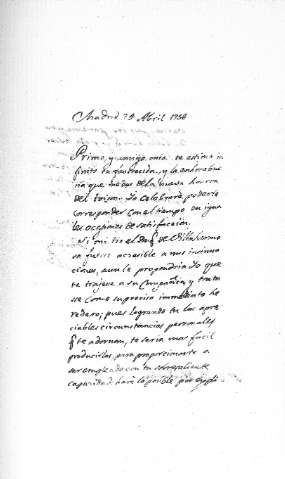 Madrid 29 Abril 1758
Primo, y amigo mio te estimo in
finito tu gratitud, y la enorabue
na que me das de la nueva honra
del toison. Yo celebrara poderte
corresponder con el tiempo en igua
les ocasiones de satisfaccion.
Si mi tio el Duqe de Villahermo
sa fuese accesible a mis insinua
ciones, aun le propondria Yo que
te trajese a su Compañia, y trata
se como su preciso immediato he
redero, pues logrando tu las apre
ciables circunstancias personales
q te adornan, te seria mas facil
producirlas, para proporcionarte a
ser empleado con tu sobresaliente
capacidad. hare lo posible por